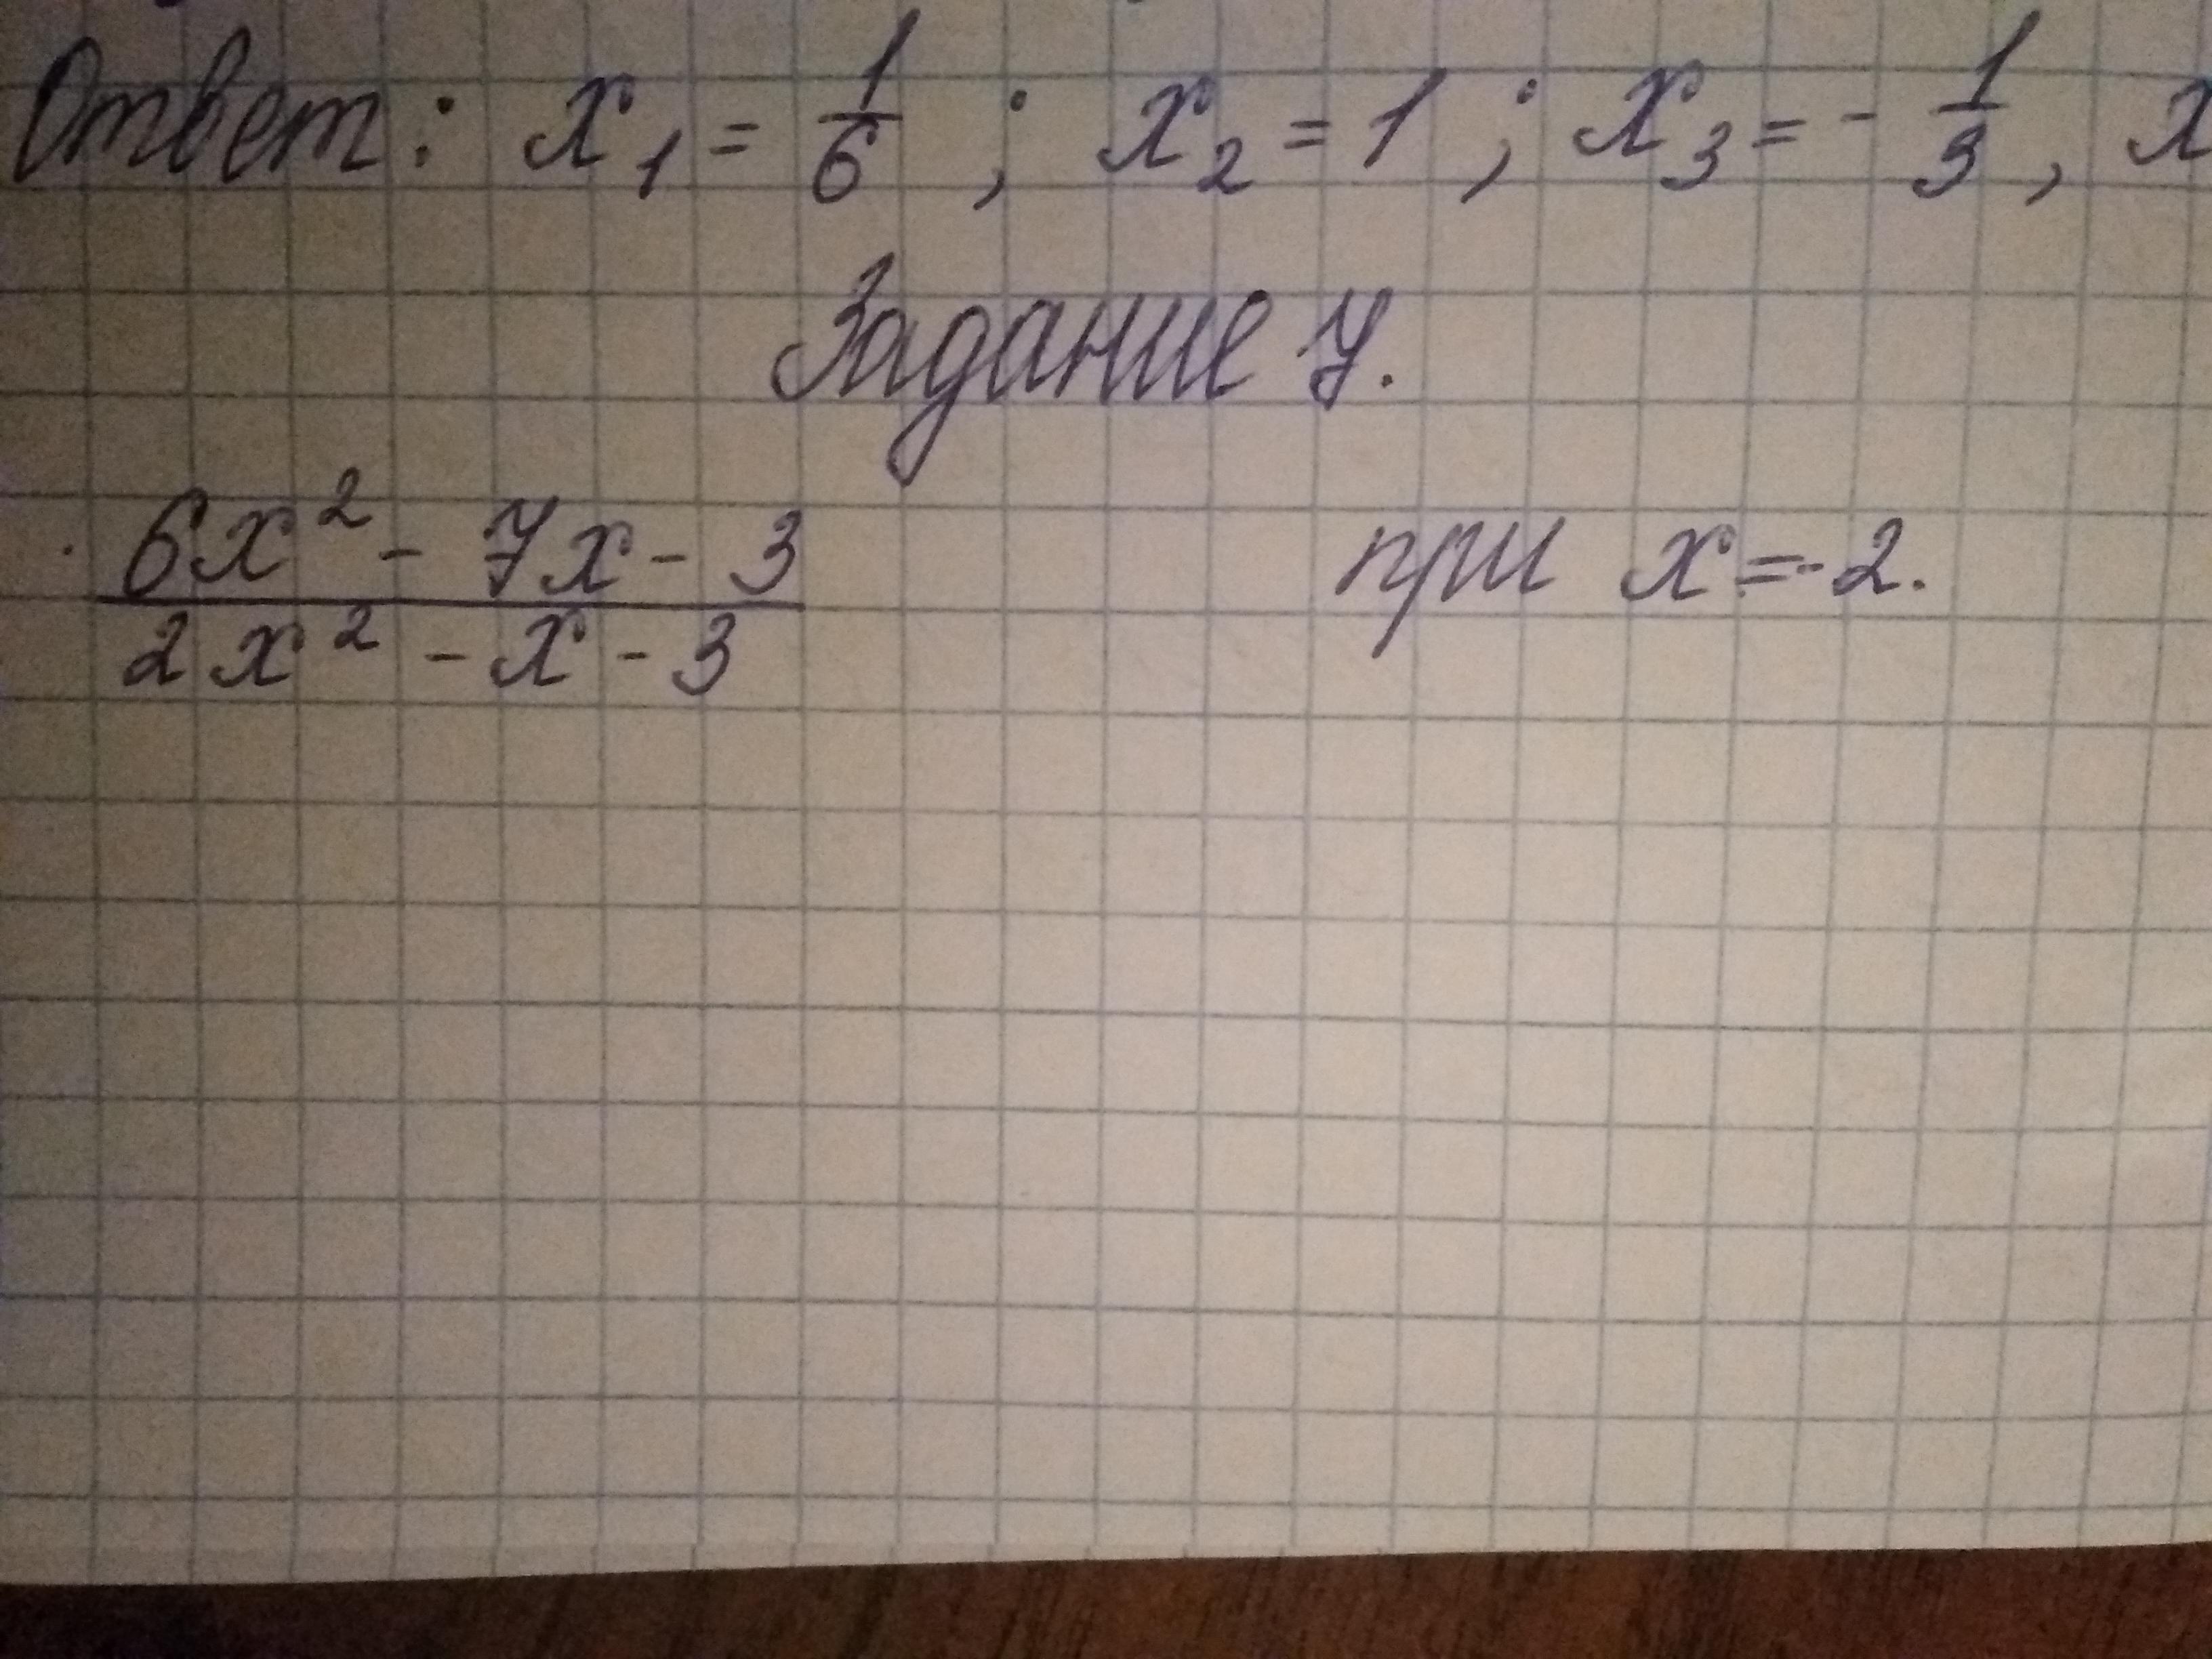 Ответ: x₁ = 1/6 ; x₂ = 1 ; x₃ = - 1/3 , x
Задание 4.
(6x² - 7x - 3)/(2x² - x - 3) при x = -2.